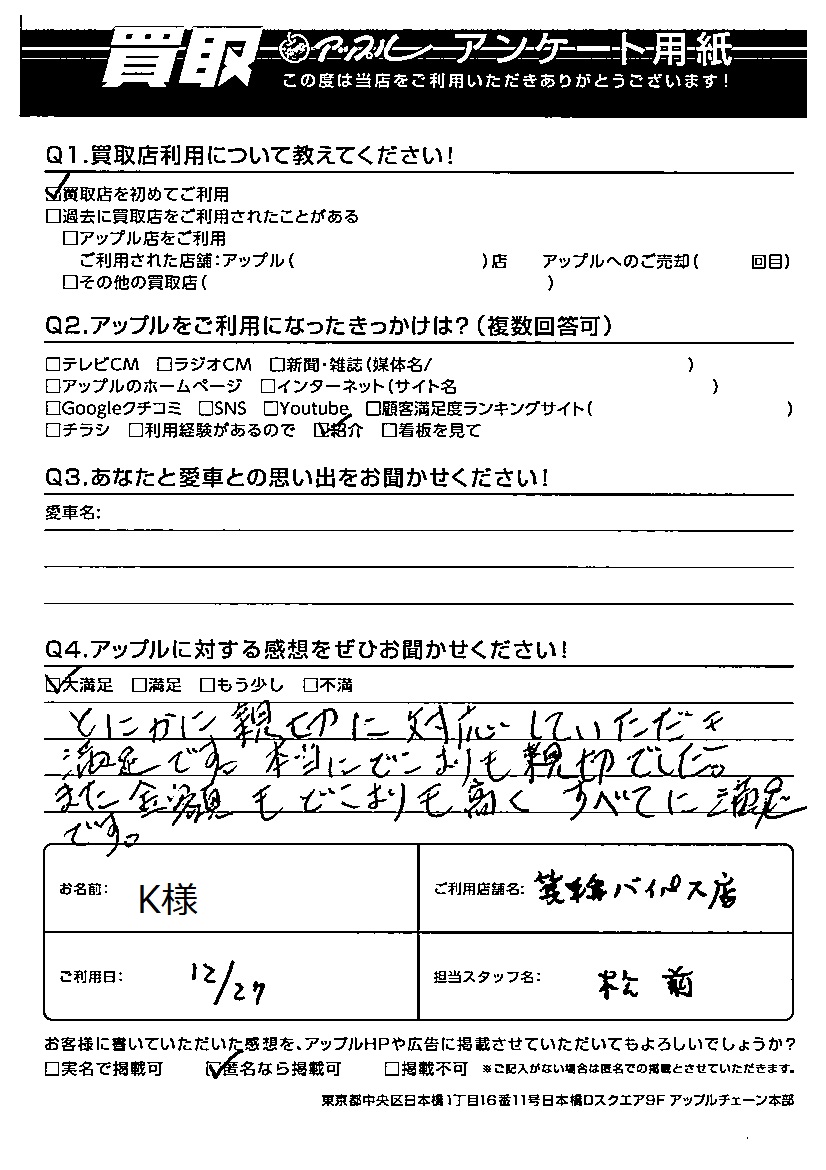 買取 アップル アンケート用紙
この度は当店をご利用いただきありがとうございます！
Q1.買取店利用について教えてください！
☑買取店を初めてご利用
□過去に買取店をご利用されたことがある
□アップル店をご利用
ご利用された店舗：アップル（　　）店　アップルへのご売却（　　回目）
□その他の買取店（　　）
Q2.アップルをご利用になったきっかけは？（複数回答可）
□テレビCM □ラジオCM □新聞・雑誌（媒体名/　　）
□アップルのホームページ □インターネット（サイト名　　）
□Googleクチコミ □SNS □Youtube □顧客満足度ランキングサイト（　　）
□チラシ □利用経験があるので ☑紹介 □看板を見て
Q3.あなたと愛車との思い出をお聞かせください！
愛車名：
Q4.アップルに対する感想をぜひお聞かせください！
☑大満足 □満足 □もう少し □不満
とにかに親切に対応していただき
満足です。本当にどこよりも親切でした。
また金額もどこよりも高くすべてに満足
です。
お名前： K様
ご利用店舗名： 箕輪バイパス店
ご利用日： 12/27
担当スタッフ名： 松前
お客様に書いていただいた感想を、アップルHPや広告に掲載させていただいてもよろしいでしょうか？
□実名で掲載可 ☑匿名なら掲載可 □掲載不可 ※ご記入がない場合は匿名での掲載とさせていただきます。
東京都中央区日本橋1丁目16番11号日本橋Dスクエア9F アップルチェーン本部